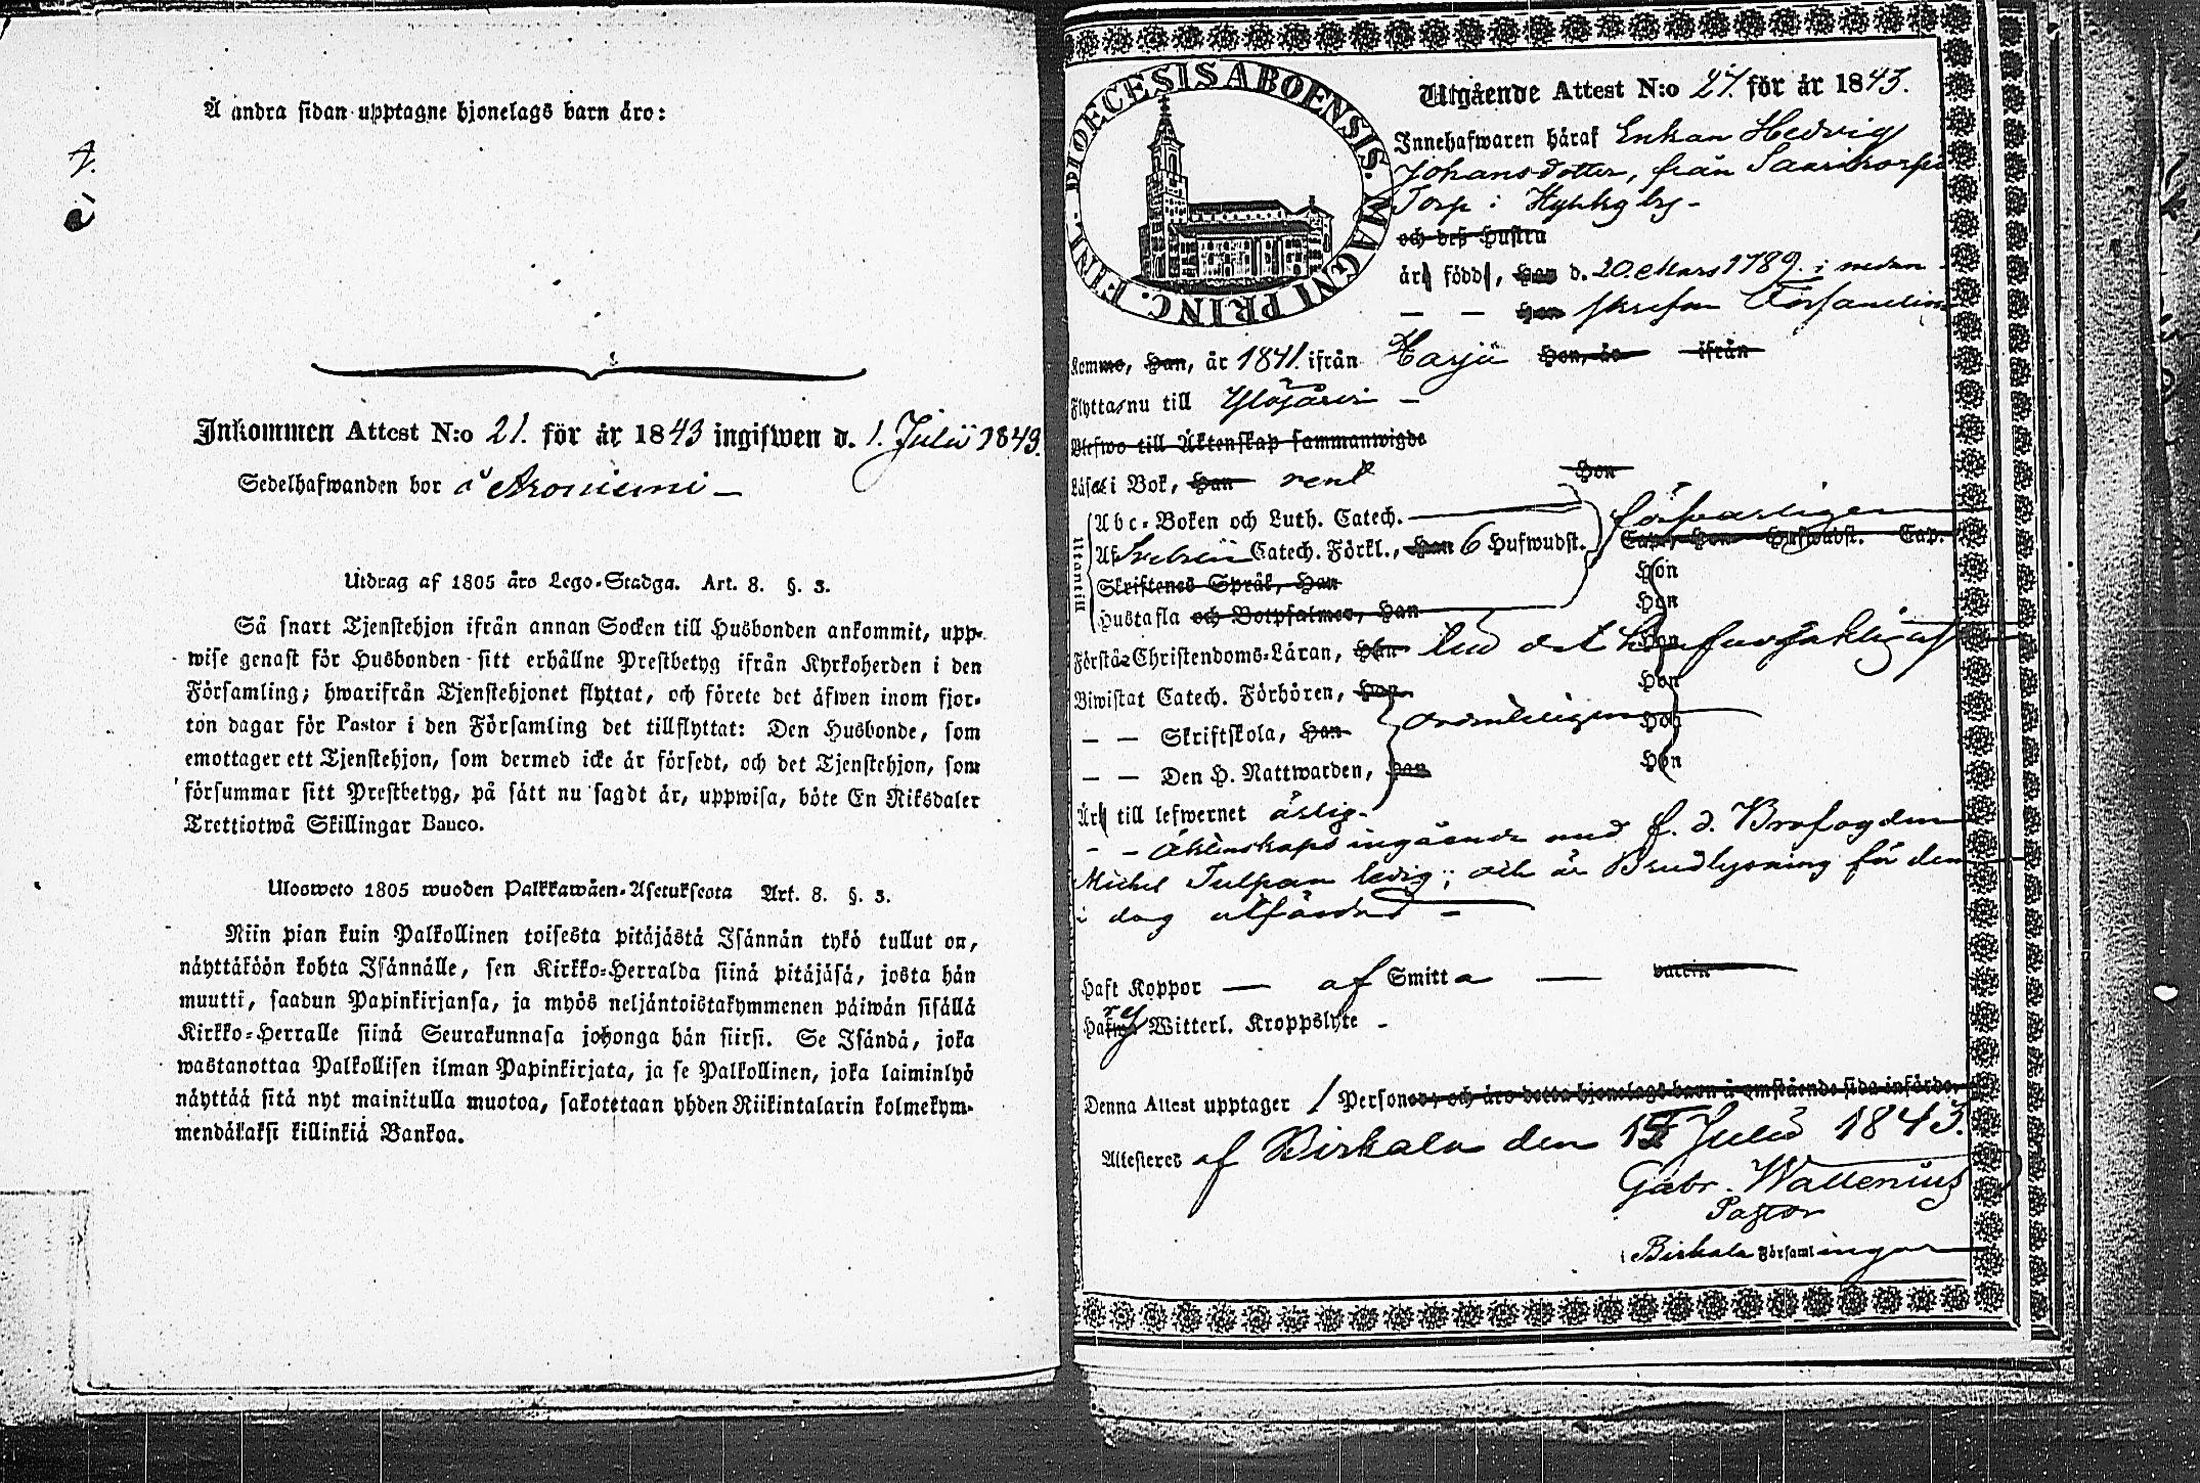 Å andra sidan upptagne hjonelags barn äro:
Inkommen Attest N:o 21. för år 1843 ingifwen d. 1. Julii 1843.
Sedelhafwanden bor å Aroniemi —
Utdrag af 1805 års Lego-Stadga. Art. 8. §. 3.
Så snart Tjenstehjon ifrån annan Socken till Husbonden ankommit, upp-
wise genast för Husbonden sitt erhållne Prestbetyg ifrån Kyrkoherden i den
Församling; hwarifrån Tjenstehjonet flyttat, och förete det äfwen inom fjor-
ton dagar för Pastor i den Församling det tillflyttat: Den Husbonde, som
emottager ett Tjenstehjon, som dermed icke är försedt, och det Tjenstehjon, som
försummar sitt Prestbetyg, på sätt nu sagdt är, uppwisa, böte En Riksdaler
Trettiotwå Skillingar Banco.
Ulosweto 1805 wuoden Palkkawäen-Asetuksesta Art. 8. §. 3.
Niin pian kuin Palkollinen toisesta pitäjästä Isännän tykö tullut on,
näyttäköön kohta Isännälle, sen Kirkko-Herralda siinä pitäjäsä, josta hän
muutti, saadun Papinkirjansa, ja myös neljäntoistakymmenen päiwän sisällä
Kirkko-Herralle siinä Seurakunnasa johonga hän siirsi. Se Isändä, joka
wastanottaa Palkollisen ilman Papinkirjata, ja se Palkollinen, joka laiminlyö
näyttää sitä nyt mainitulla muotoa, sakotetaan yhden Riikintalarin kolmekym-
mendäkaksi killinkiä Bankoa.
DIOECESIS ABOENSIS. MAGNI PRINC. FINL.
Utgående Attest N:o 27. för år 1843.
Innehafwaren häraf Enkan Hedvig
Johansdotter, från Saarikorpi
Torp i Hyhky by -
och deß Hustru
äro födde, han d. 20. Mars 1789. i nedan
— — hon skrefne Församling
Kommo, Han, år 1841. ifrån Harju Hon, år ifrån
Flytta nu till Ylöjärvi —
Blefwo till Äktenskap sammanwigde
Läser i Bok, Han rent Hon
Utantill
Abc-Boken och Luth. Catech.
Af Svebelii Catech. Förkl., Han 6 Hufwudst. försvarligen Cap., Hon Hufwudst. Cap.
Skriftenes Språk, Han Hon
Hustafla och Botpsalmer, Han Hon
Förstår Christendoms-Läran, Han Hon
Biwistat Catech. Förhören, Han Hon
— — Skriftskola, Han ordentligen Hon
— — Den H. Nattwarden, Han Hon
Är till lefwernet ärlig.
- - Äktenskaps ingående med f. d. Brofogden
Michel Tulpan ledig; och är Brudlysning för dem
i dag utfärdad —
Haft Koppor — af Smitta — vaccin
Hafwa Witterl. Kroppslyte -
Denna Attest upptager 1 Personer, och äro detta hjonelags barn å omstående sida införde.
Attesteres af Birkala den 1 Julii 1843.
Gabr. Wallenius
Pastor
i Birkala Församlingar